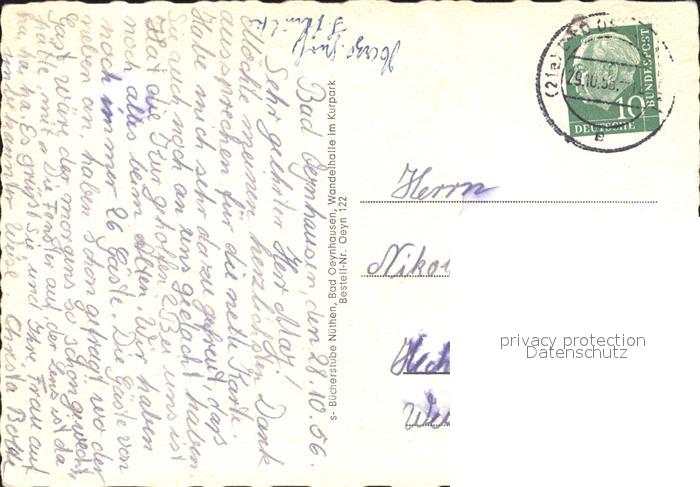 Bad Oeynhausen, den 28.10.56.
Sehr geehrter Herr May!
Möchte meinen herzlichsten Dank
aussprechen für die nette Karte.
Habe mich sehr dazu gefreut, daß
Sie auch noch an uns gedacht haben.
Hat die Kur geholfen? Bei uns ist
noch alles beim alten. Wir haben
noch immer 26 Gäste. Die Gäste von
neben an, haben schon gefragt wo der
Gast wäre der morgens so schön geweckt
hätte, mit: Die Fenster auf, der Lenz ist da
ha, ha, ha. Es grüßt Sie und Ihre Frau auf
Christa
s- Bücherstube Nüthen, Bad Oeynhausen, Wandelhalle im Kurpark
Bestell-Nr. Oeyn 122
(21a) BAD
29.10.56.
e
10
BUNDESPOST
DEUTSCHE
Herrn
Niko
privacy protection
Datenschutz